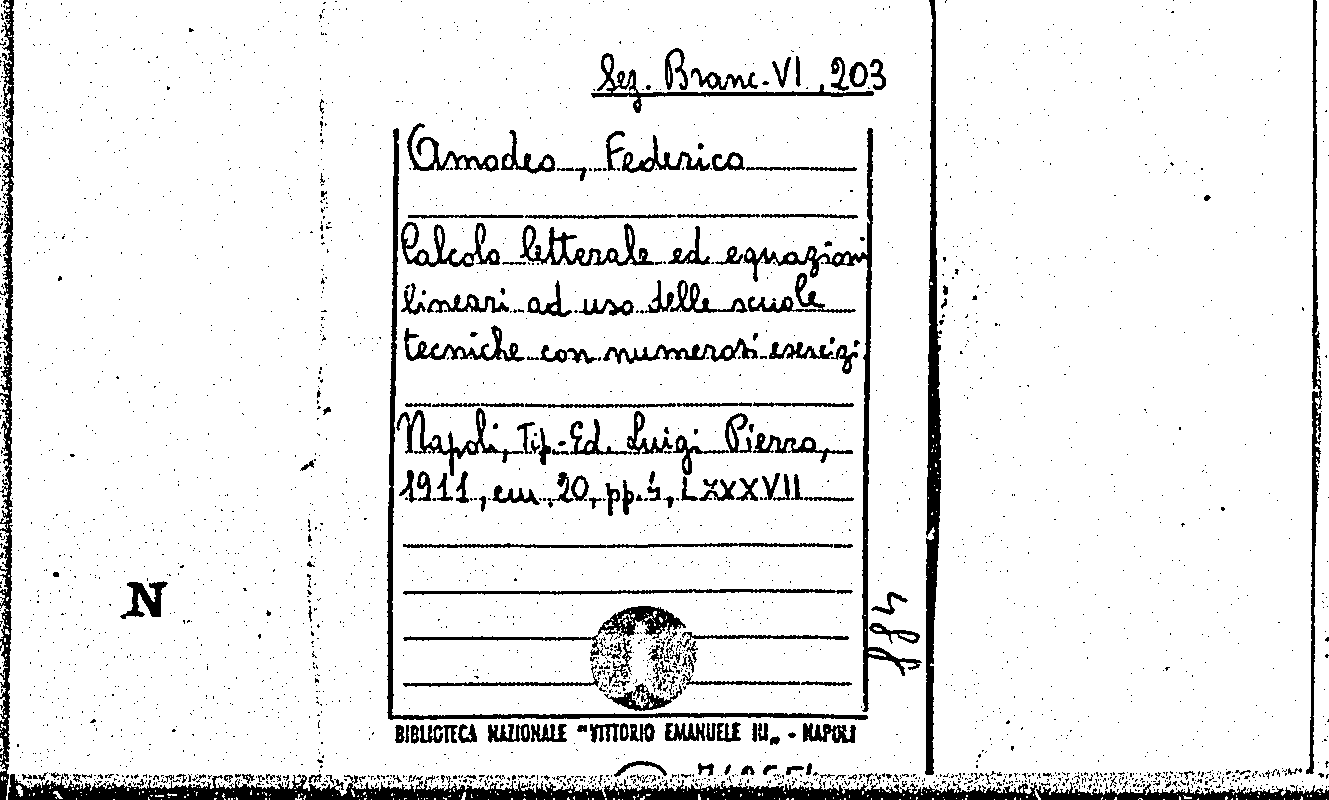 Sez. Branc. VI, 203
Amodeo, Federico
Calcolo letterale ed equazioni
lineari ad uso delle scuole
tecniche con numerosi esercizi.
Napoli, Tip.-Ed. Luigi Pierro,
1911, cm. 20, pp. 4, LXXXVII
N
BIBLIOTECA NAZIONALE "VITTORIO EMANUELE III„ - NAPOLI